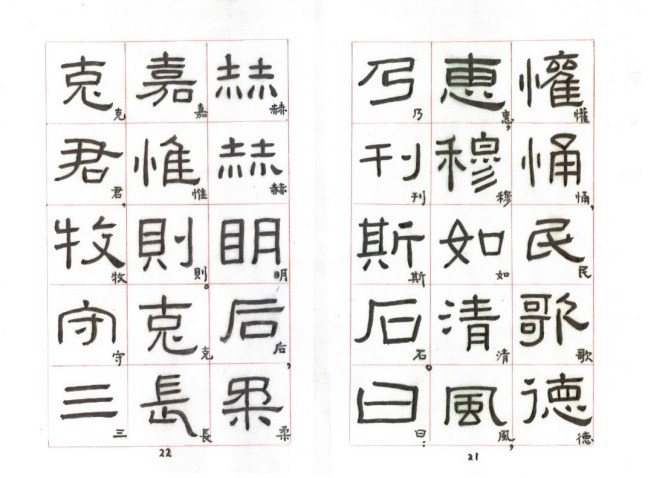 懽悀民歌德
懽悀，民歌德
惠穆如清風
惠，穆如清風，
乃刊斯石曰
乃刊斯石。曰：
21
赫赫明后柔
赫赫明后，柔
嘉惟則克長
嘉惟則。克長
克君牧守三
克君，牧守三
22